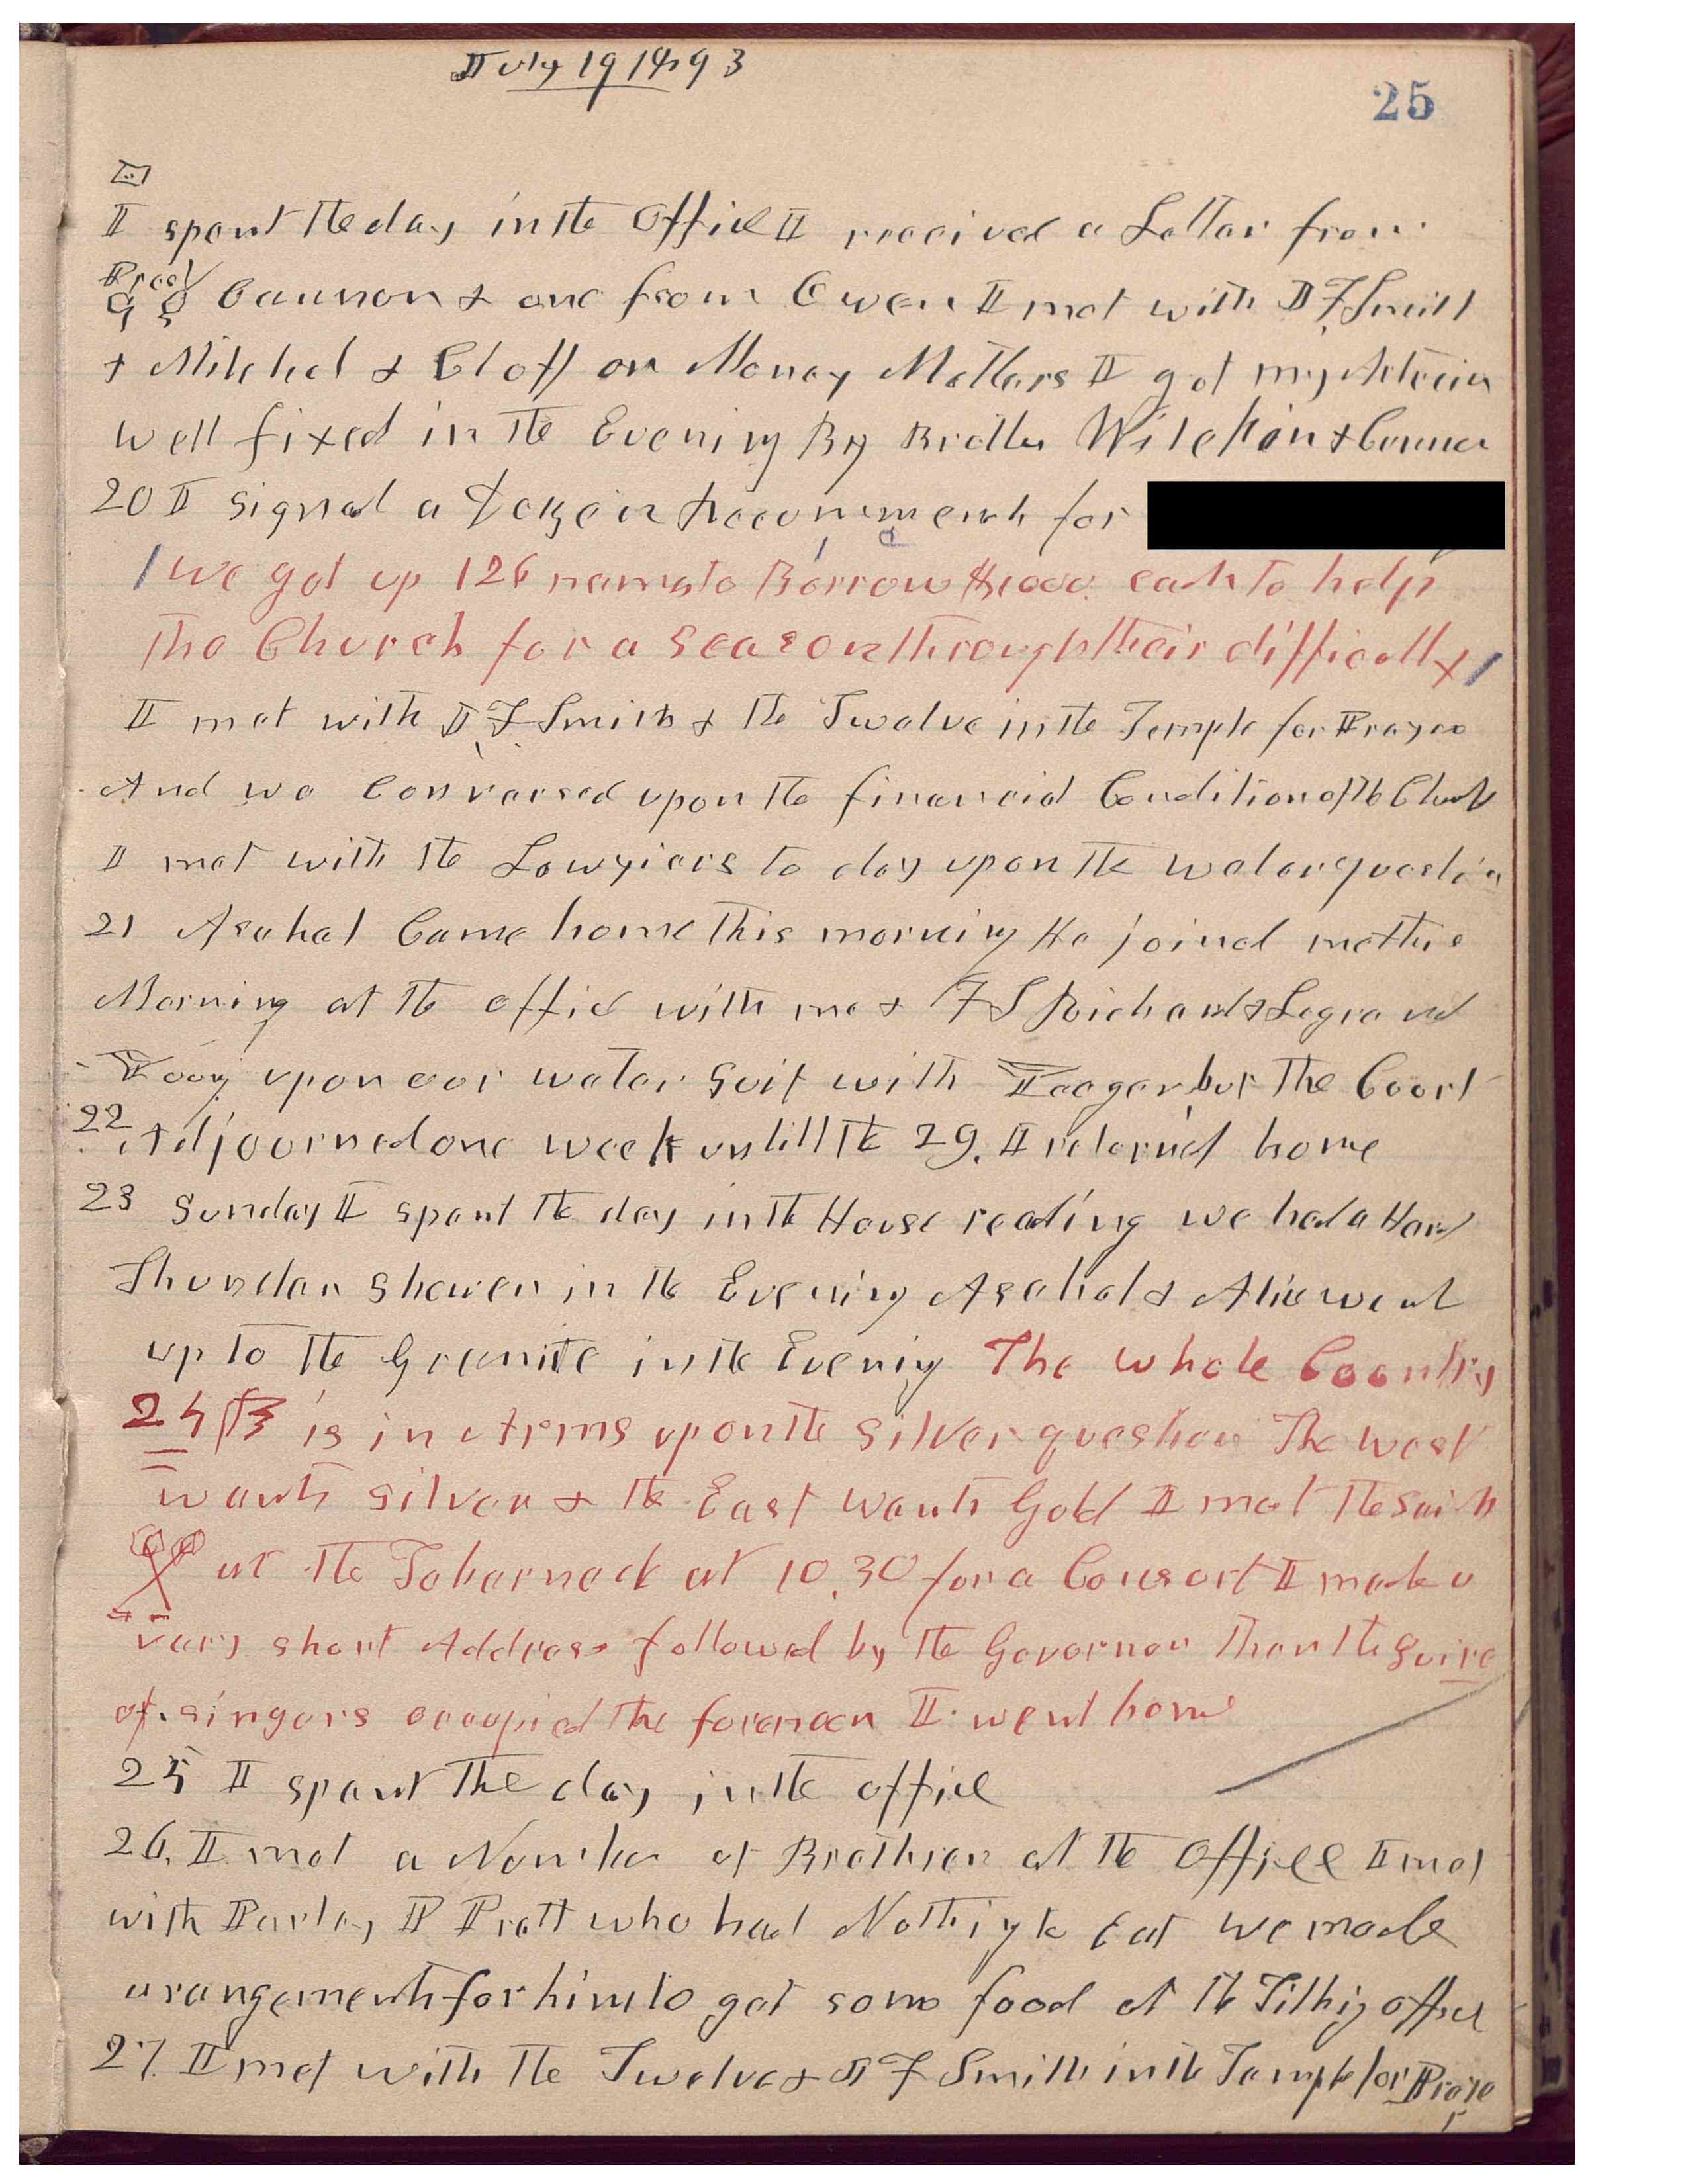 July 19 1893
25
I spent the day in the Office I received a Letter from
Presd
G Q Cannon & one from Owen I met with J F Smith
& Mitchel & Cloff on Money Matters I got my
well fixed in the Evening By Brother Wilckin &
20 I signed a recommends for
we got up 126 names to Borrow $1000 each to help
The Church for a season through their difficulty
I met with J F Smith & the Twelve in the Temple for Prayer
And we Conversed upon the financial Condition of the Church
I met with the Lawyiers to day upon the water question
21 Asahel Came home this morning He joind me the
Morning at the office with me & F S Richards & Legrand
Young upon our water suit with but The Court
22 Adjourned one week untill the 29. I returned home
23 Sunday I spent the day in the House reading we had a Hard
Thunder shower in the Evening Asahel & Alice went
up to the Granite in the Evening The whole Country
24th is in Arms upon the silver question The west
wants silver & the East wants Gold I met the Saints
at the Tabernacle at 10.30 for a Consort I made a
vary short Address followed by the Govornor Then the Quire
of singers occupied the forenoon I went home
25 I spent The day in the office
26. I met a Number of Brethren at the Office I met
with Parley P Pratt who had Nothing to Eat we made
arangements for him to get some food at the Tithing office
27. I met with the Twelve & J F Smith in the Temple for Prayer